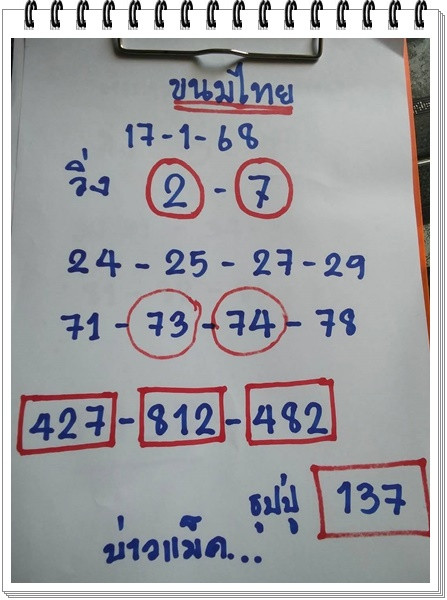 ขนมไทย
17-1-68
วิ่ง 2 - 7
24 - 25 - 27 - 29
71 - 73 - 74 - 78
427 - 812 - 482
ธูปปู่ 137
บ่าวแม็ค...